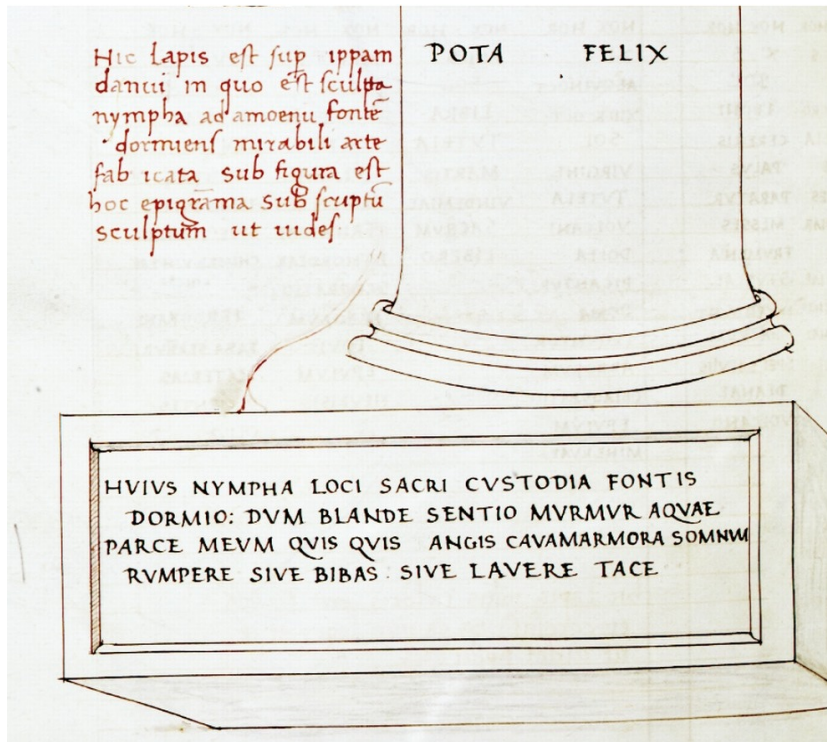 POTA FELIX
Hic lapis est sup ippam
danuii in quo est sculpta
nympha ad amoenu fonte
dormiens mirabili arte
fab icata sub figura est
hoc epigrama sub scuptu
sculptum ut uides
HVIVS NYMPHA LOCI SACRI CVSTODIA FONTIS
DORMIO: DVM BLANDE SENTIO MVRMVR AQVAE.
PARCE MEVM QVIS QVIS ANGIS CAVAMARMORA SOMNVM
RVMPERE SIVE BIBAS : SIVE LAVERE TACE